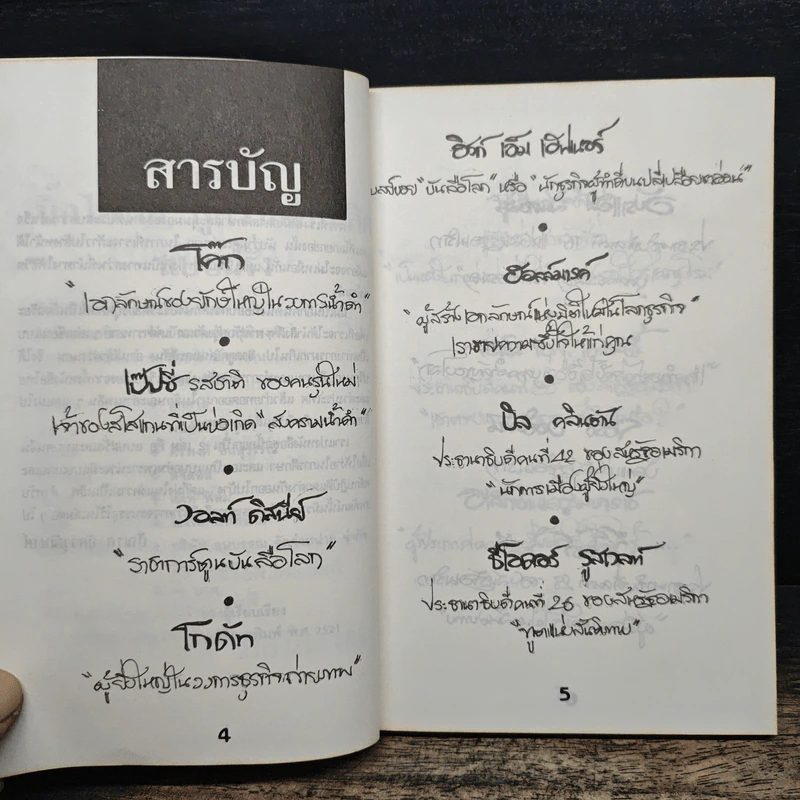 สารบัญ
โค๊ก
"เอกลักษณ์ของยักษ์ใหญ่ในวงการน้ำดำ"
เป๊ปซี่ รสชาติ ของคนรุ่นใหม่
เจ้าของสโลแกนที่เป็นบ่อเกิด "สงครามน้ำดำ"
วอลท์ ดิสนีย์
"ราชาการ์ตูนบันลือโลก"
โกดัก
"ผู้ยิ่งใหญ่ในวงการธุรกิจถ่ายภาพ"
4
ฮิวก์ เอ็ม เฮฟเนอร์
"บันลือโลก" หรือ "นักธุรกิจผู้ทำ
ฮอลล์มาร์ค
"ผู้สร้างเอกลักษณ์แห่งมิตรใหม่ในโลกธุรกิจ"
เราขายความซึ้งใจให้แก่คุณ
บิล คลินตัน
ประธานาธิบดีคนที่ 42 ของสหรัฐอเมริกา
"นักการเมืองผู้ยิ่งใหญ่"
ธีโอดอร์ รูสเวลท์
ประธานาธิบดีคนที่ 26 ของสหรัฐอเมริกา
"ทูตแห่งสันติภาพ"
5